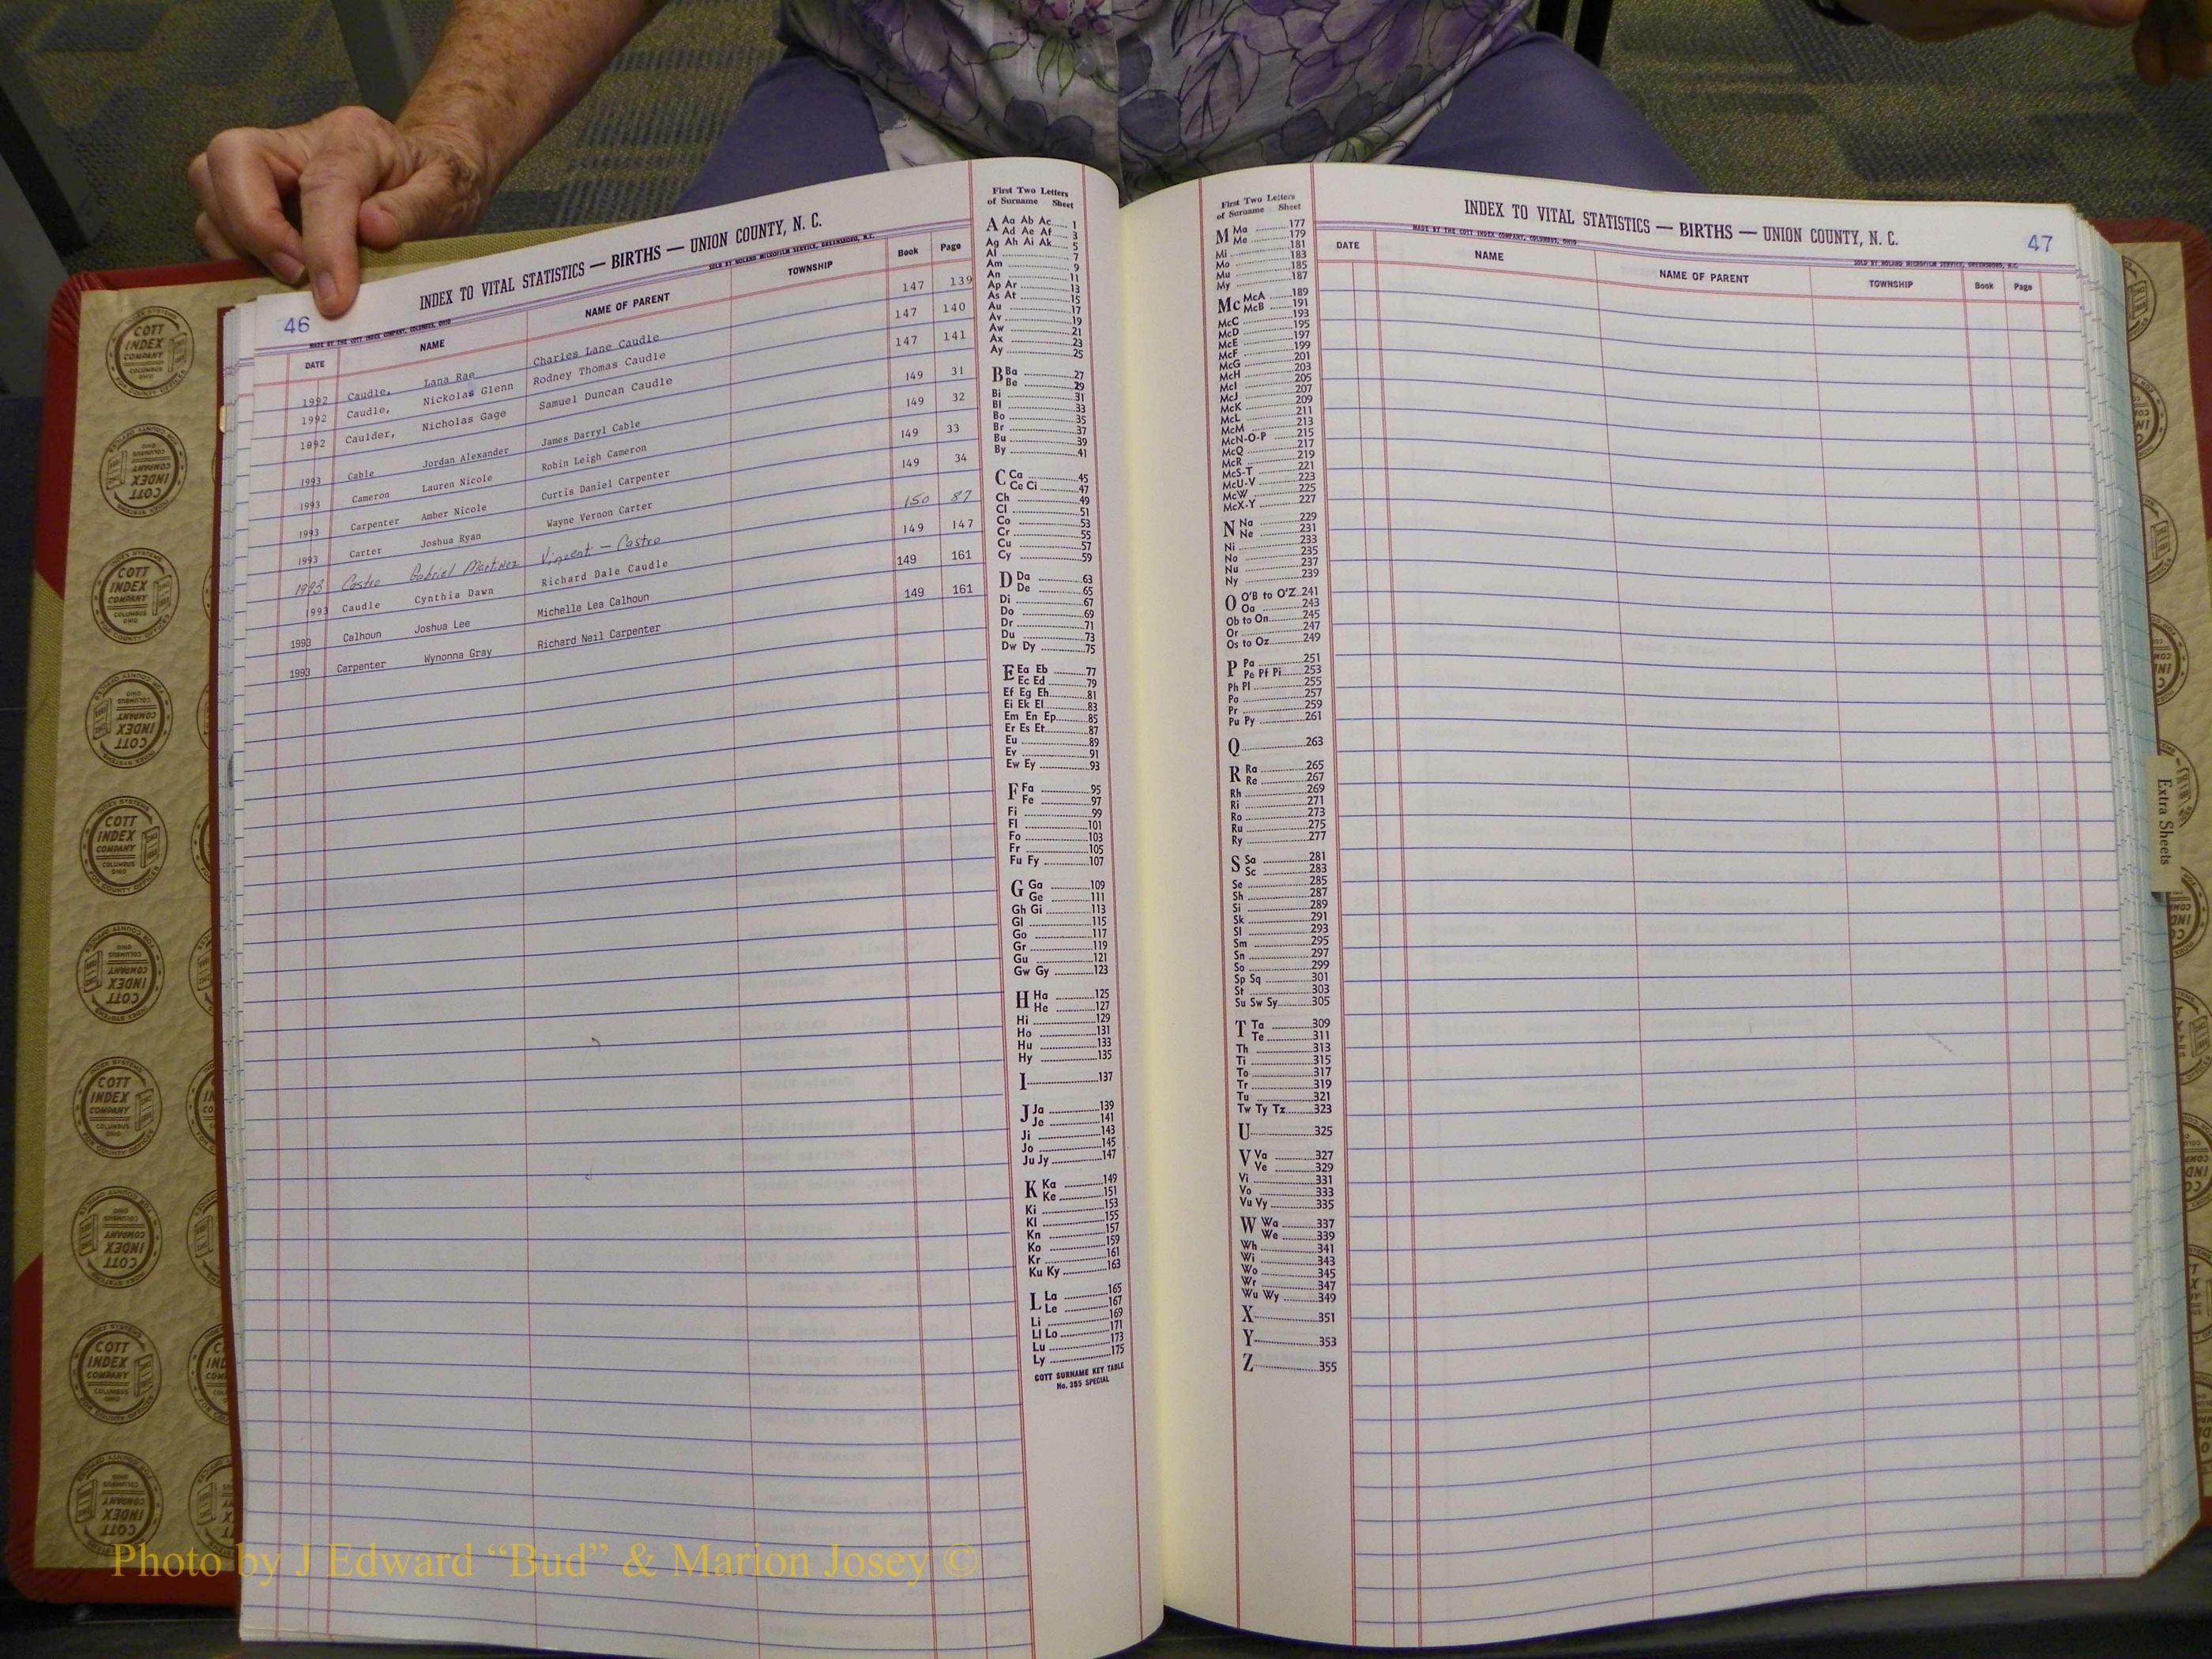 46
INDEX TO VITAL STATISTICS — BIRTHS — UNION COUNTY, N. C.
MADE BY THE COTT INDEX COMPANY, COLUMBUS, OHIO SOLD BY NOLAND MICROFILM SERVICE, GREENSBORO, N.C.
DATE NAME NAME OF PARENT TOWNSHIP Book Page
1992 Caudle, Lana Rae Charles Lane Caudle 147 139
1992 Caudle, Nickolas Glenn Rodney Thomas Caudle 147 140
1992 Caulder, Nicholas Gage Samuel Duncan Caudle 147 141
1993 Cable Jordan Alexander James Darryl Cable 149 31
1993 Cameron Lauren Nicole Robin Leigh Cameron 149 32
1993 Carpenter Amber Nicole Curtis Daniel Carpenter 149 33
1993 Carter Joshua Ryan Wayne Vernon Carter 149 34
1993 Castro Gabriel Martinez Vincent - Castro 150 87
1993 Caudle Cynthia Dawn Richard Dale Caudle 149 147
1993 Calhoun Joshua Lee Michelle Lea Calhoun 149 161
1993 Carpenter Wynonna Gray Richard Neil Carpenter 149 161
First Two Letters
of Surname Sheet
A Aa Ab Ac 1
Ad Ae Af 3
Ag Ah Ai Ak 5
Al 7
Am 9
An 11
Ap Ar 13
As At 15
Au 17
Av 19
Aw 21
Ax 23
Ay 25
B Ba 27
Be 29
Bi 31
Bl 33
Bo 35
Br 37
Bu 39
By 41
C Ca 45
Ce Ci 47
Ch 49
Cl 51
Co 53
Cr 55
Cu 57
Cy 59
D Da 63
De 65
Di 67
Do 69
Dr 71
Du 73
Dw Dy 75
E Ea Eb 77
Ec Ed 79
Ef Eg Eh 81
Ei Ek El 83
Em En Ep 85
Er Es Et 87
Eu 89
Ev 91
Ew Ey 93
F Fa 95
Fe 97
Fi 99
Fl 101
Fo 103
Fr 105
Fu Fy 107
G Ga 109
Ge 111
Gh Gi 113
Gl 115
Go 117
Gr 119
Gu 121
Gw Gy 123
H Ha 125
He 127
Hi 129
Ho 131
Hu 133
Hy 135
I 137
J Ja 139
Je 141
Ji 143
Jo 145
Ju Jy 147
K Ka 149
Ke 151
Ki 153
Kl 155
Kn 157
Ko 159
Kr 161
Ku Ky 163
L La 165
Le 167
Li 169
Ll Lo 171
Lu 173
Ly 175
COTT SURNAME KEY TABLE
No. 355 SPECIAL
First Two Letters
of Surname Sheet
M Ma 177
Me 179
Mi 181
Mo 183
Mu 185
My 187
Mc McA 189
McB 191
McC 193
McD 195
McE 197
McF 199
McG 201
McH 203
McI 205
McJ 207
McK 209
McL 211
McM 213
McN-O-P 215
McQ 217
McR 219
McS-T 221
McU-V 223
McW 225
McX-Y 227
N Na 229
Ne 231
Ni 233
No 235
Nu 237
Ny 239
O O'B to O'Z 241
Oa 243
Ob to On 245
Or 247
Os to Oz 249
P Pa 251
Pe Pf Pi 253
Ph Pl 255
Po 257
Pr 259
Pu Py 261
Q 263
R Ra 265
Re 267
Rh 269
Ri 271
Ro 273
Ru 275
Ry 277
S Sa 281
Sc 283
Se 285
Sh 287
Si 289
Sk 291
Sl 293
Sm 295
Sn 297
So 299
Sp Sq 301
St 303
Su Sw Sy 305
T Ta 309
Te 311
Th 313
Ti 315
To 317
Tr 319
Tu 321
Tw Ty Tz 323
U 325
V Va 327
Ve 329
Vi 331
Vo 333
Vu Vy 335
W Wa 337
We 339
Wh 341
Wi 343
Wo 345
Wr 347
Wu Wy 349
X 351
Y 353
Z 355
INDEX TO VITAL STATISTICS — BIRTHS — UNION COUNTY, N. C.
47
MADE BY THE COTT INDEX COMPANY, COLUMBUS, OHIO SOLD BY NOLAND MICROFILM SERVICE, GREENSBORO, N.C.
DATE NAME NAME OF PARENT TOWNSHIP Book Page
Extra Sheets
COTT
INDEX
COMPANY
COLUMBUS
OHIO
INDEX SYSTEMS
FOR COUNTY OFFICES
Photo by J Edward “Bud” & Marion Josey ©